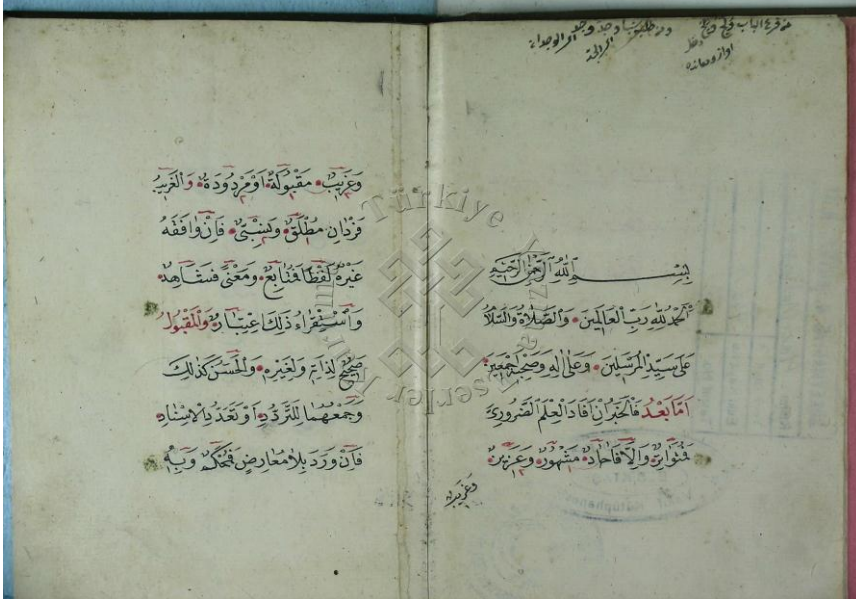 من قرع الباب ولج ولج
ومن طلب شيئا وجد وجد
بِسْمِ اللّٰهِ الرَّحْمٰنِ الرَّحِيمِ
اَلْحَمْدُ لِلّٰهِ رَبِّ الْعَالَمِينَ وَالصَّلَاةُ وَالسَّلَامُ
عَلَى سَيِّدِ الْمُرْسَلِينَ وَعَلَى اٰلِهِ وَصَحْبِهِ اَجْمَعِينَ
اَمَّا بَعْدُ فَالْخَبَرُ اِنْ اَفَادَ الْعِلْمَ الضَّرُورِيَّ
فَمُتَوَاتِرٌ وَاِلَّا فَاٰحَادٌ مَشْهُورٌ وَعَزِيزٌ
وغريب
وَغَرِيبٌ مَقْبُولَةٌ اَوْ مَرْدُودَةٌ وَالْغَرِيبُ
فَرْدَانِ مُطْلَقٌ وَنِسْبِيٌّ فَاِنْ وَافَقَهُ
غَيْرُهُ لَفْظًا فَتَابِعٌ وَمَعْنًى فَشَاهِدٌ
وَاسْتِقْرَاءُ ذٰلِكَ اعْتِبَارٌ وَالْمَقْبُولُ
صَحِيحٌ لِذَاتِهِ وَلِغَيْرِهِ وَالْحَسَنُ كَذٰلِكَ
وَجَمْعُهُمَا لِلتَّرَدُّدِ اَوْ تَعَدُّدِ الْاِسْنَادِ
فَاِنْ وَرَدَ بِلَا مُعَارِضٍ فَمُحْكَمٌ وَبِهِ
Türkiye Yazma Eserler Kurumu